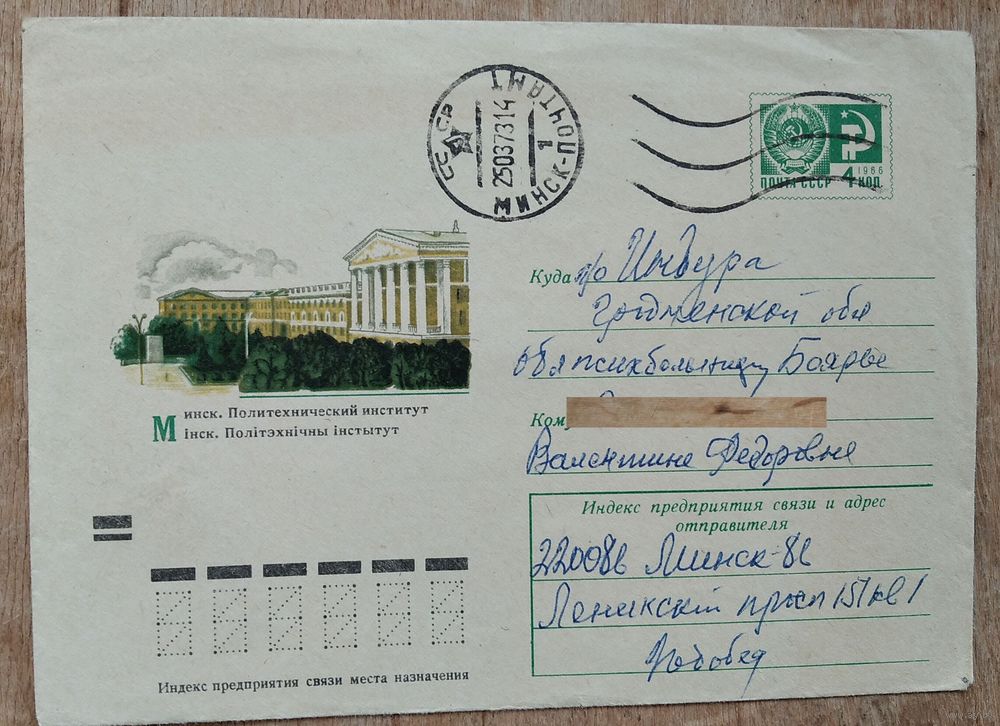 СССР
МИНСК-ПОЧТАМТ
25037314
1
ПОЧТА СССР
1966
4 КОП.
Куда п/о Индура
Гродненской обл
обл психбольница Боярье
Кому
Валентине Федоровне
Минск. Политехнический институт
Мінск. Політэхнічны інстытут
Индекс предприятия связи и адрес
отправителя
220086 Минск-86
Ленинский просп 157 кв 1
Индекс предприятия связи места назначения